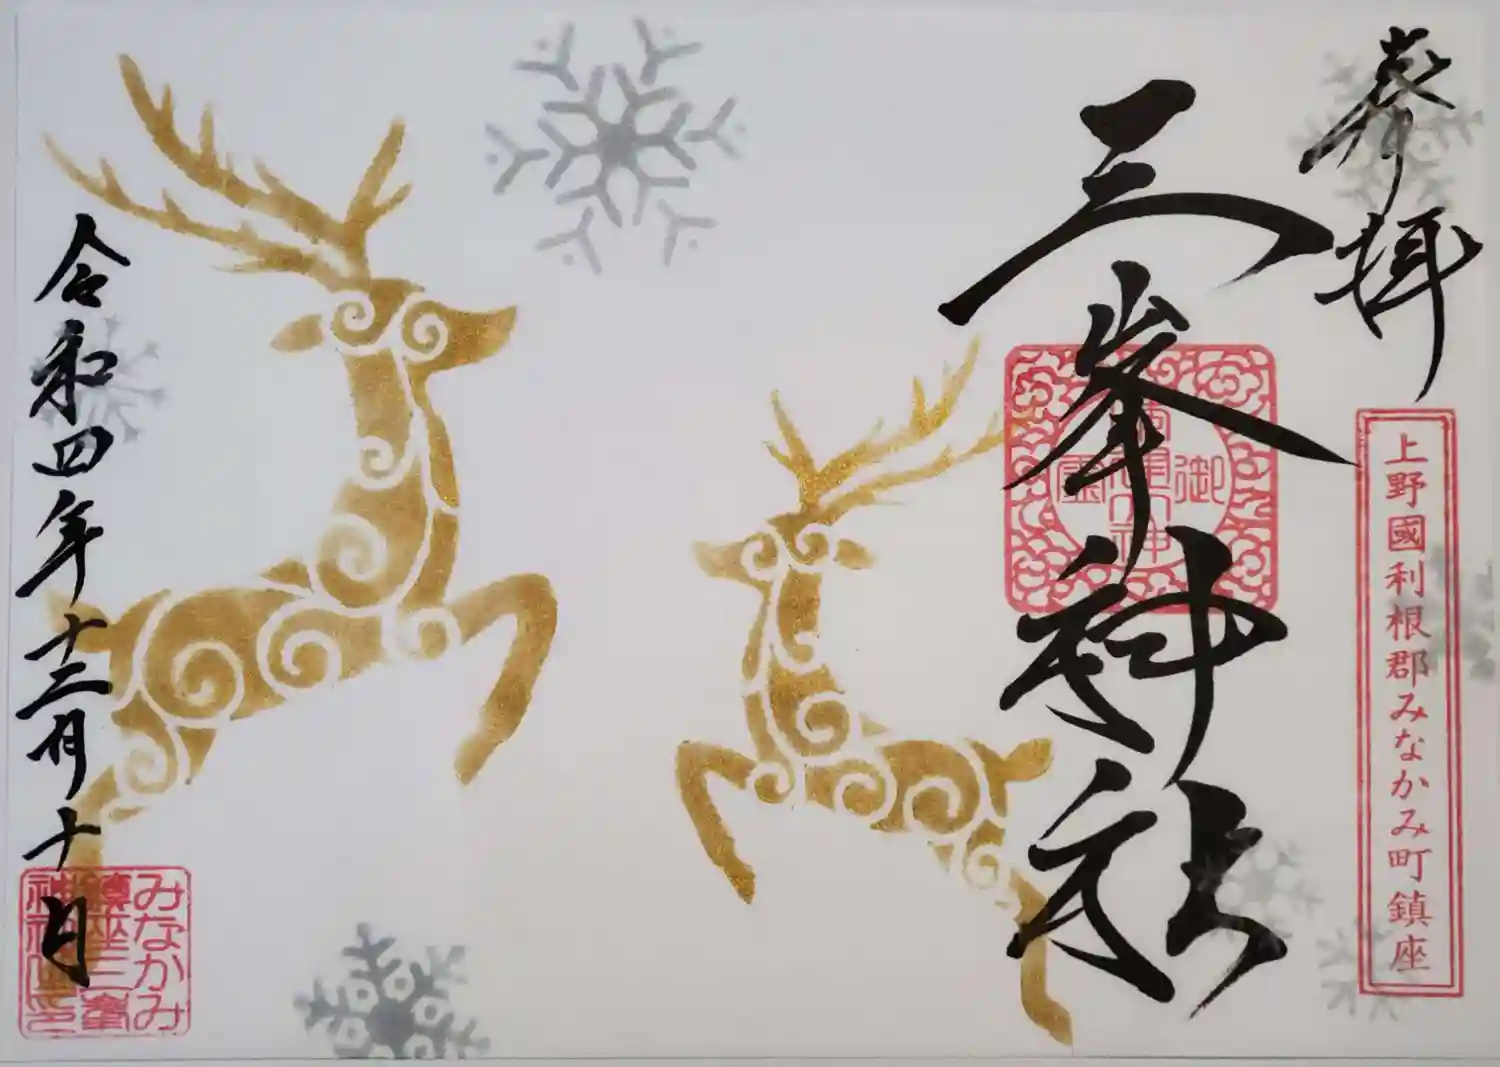 奉拝
上野國利根郡みなかみ町鎮座
三峯神社
令和四年十二月十日
みなかみ
鎮座三峯
神社